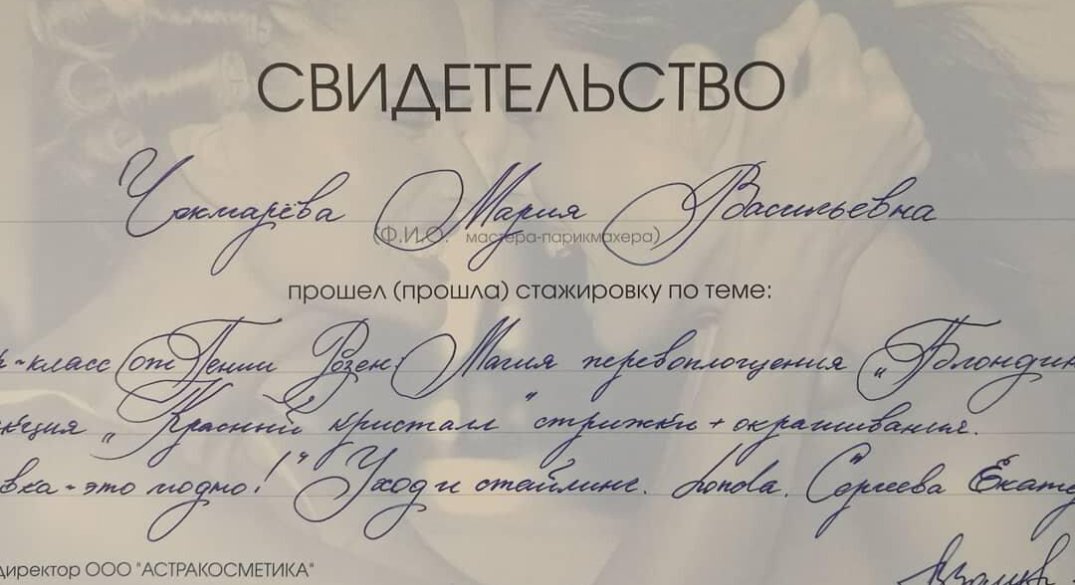 СВИДЕТЕЛЬСТВО
Чокмарёва Мария Васильевна
(Ф.И.О. мастера-парикмахера)
прошел (прошла) стажировку по теме:
-класс от Гении Розен: Магия перевоплощения „Блондин
кция „Красный кристалл" стрижки + окрашивания.
вка - это модно!" Уход и стайлинг. Londa. Сергеева Екате
директор ООО "АСТРАКОСМЕТИКА"